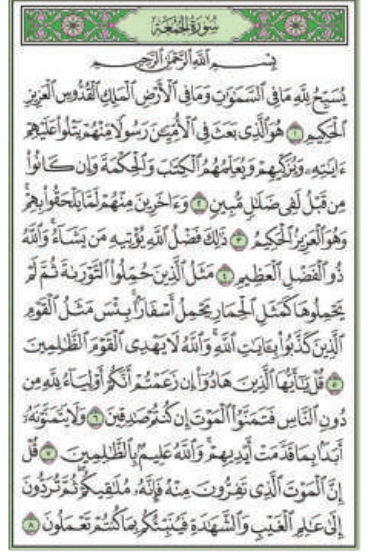 سُورَةُ الجُمُعَةِ
بِسْمِ اللَّهِ الرَّحْمَٰنِ الرَّحِيمِ
يُسَبِّحُ لِلَّهِ مَا فِي السَّمَٰوَٰتِ وَمَا فِي الْأَرْضِ الْمَلِكِ الْقُدُّوسِ الْعَزِيزِ
الْحَكِيمِ ١ هُوَ الَّذِي بَعَثَ فِي الْأُمِّيِّـنَ رَسُولًا مِّنْهُمْ يَتْلُوا عَلَيْهِمْ
ءَايَٰتِهِۦ وَيُزَكِّيهِمْ وَيُعَلِّمُهُمُ الْكِتَٰبَ وَالْحِكْمَةَ وَإِن كَانُوا
مِن قَبْلُ لَفِي ضَلَٰلٍ مُّبِينٍ ٢ وَءَاخَرِينَ مِنْهُمْ لَمَّا يَلْحَقُوا بِهِمْ
وَهُوَ الْعَزِيزُ الْحَكِيمُ ٣ ذَٰلِكَ فَضْلُ اللَّهِ يُؤْتِيهِ مَن يَشَآءُ وَاللَّهُ
ذُو الْفَضْلِ الْعَظِيمِ ٤ مَثَلُ الَّذِينَ حُمِّلُوا التَّوْرَىٰةَ ثُمَّ لَمْ
يَحْمِلُوهَا كَمَثَلِ الْحِمَارِ يَحْمِلُ أَسْفَارًا بِئْسَ مَثَلُ الْقَوْمِ
الَّذِينَ كَذَّبُوا بِـَٔايَٰتِ اللَّهِ وَاللَّهُ لَا يَهْدِي الْقَوْمَ الظَّٰلِمِينَ
٥ قُلْ يَٰٓأَيُّهَا الَّذِينَ هَادُوٓا إِن زَعَمْتُمْ أَنَّكُمْ أَوْلِيَآءُ لِلَّهِ مِن
دُونِ النَّاسِ فَتَمَنَّوُا الْمَوْتَ إِن كُنتُمْ صَٰدِقِينَ ٦ وَلَا يَتَمَنَّوْنَهُۥٓ
أَبَدًا بِمَا قَدَّمَتْ أَيْدِيهِمْ وَاللَّهُ عَلِيمٌ بِالظَّٰلِمِينَ ٧ قُلْ
إِنَّ الْمَوْتَ الَّذِي تَفِرُّونَ مِنْهُ فَإِنَّهُۥ مُلَٰقِيكُمْ ثُمَّ تُرَدُّونَ
إِلَىٰ عَٰلِمِ الْغَيْبِ وَالشَّهَٰدَةِ فَيُنَبِّئُكُم بِمَا كُنتُمْ تَعْمَلُونَ ٨